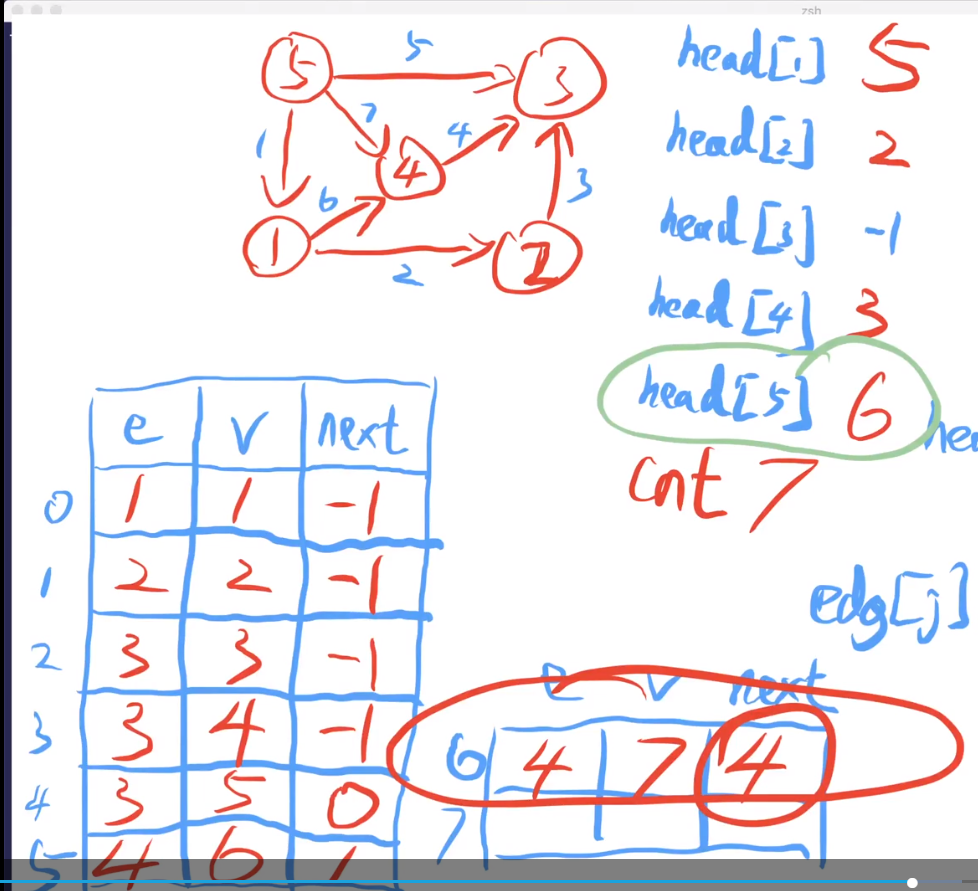 zsh
5
5 3
7
4
1 4
6 3
1 2
2
head[1] 5
head[2] 2
head[3] -1
head[4] 3
head[5] 6
cnt 7
edg[j]
e v next
0 1 1 -1
1 2 2 -1
2 3 3 -1
3 3 4 -1
4 3 5 0
5 4 6 1
e v next
6 4 7 4
7